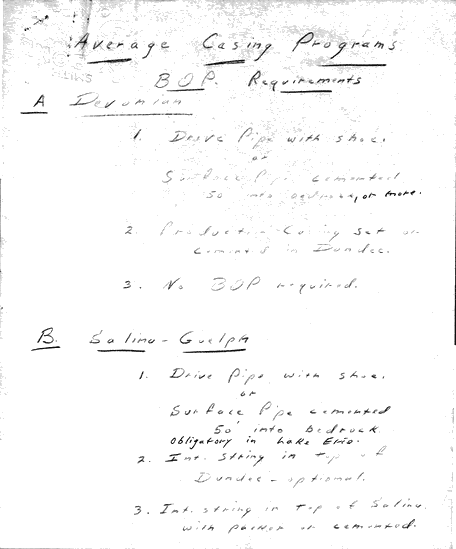 Average Casing Programs
BOP. Requirements
A Devonian
1. Drive Pipe with shoe.
or
Surface Pipe cemented
50' into bedrock, or more.
2. Production Casing set or
cemented in Dundee.
3. No BOP required.
B. Salina - Guelph
1. Drive Pipe with shoe.
or
Surface Pipe cemented
50' into bedrock
Obligatory in Lake Erie.
2. Int. String in Top of
Dundee - optional.
3. Int. string in Top of Salina
with packer or cemented.